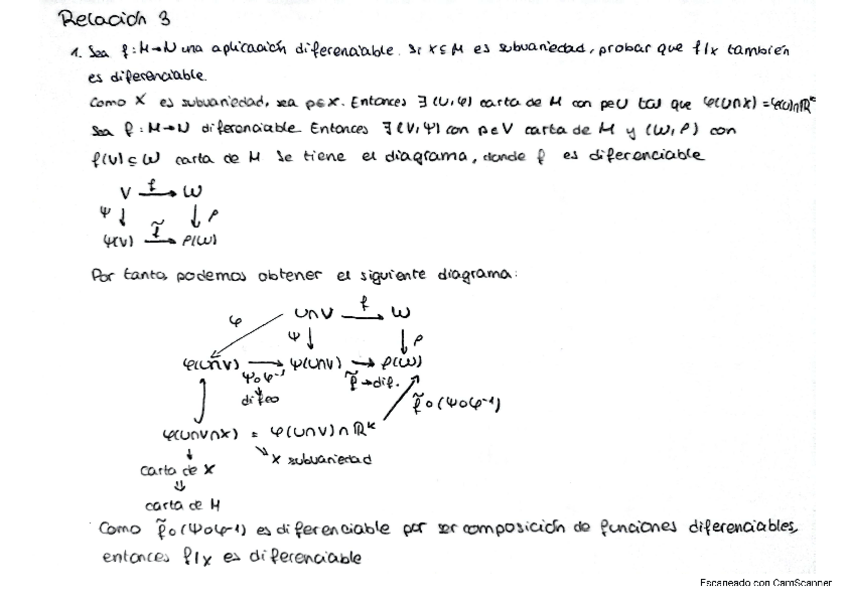 Relación 3
1. Sea f: M→N una aplicación diferenciable. Si X ⊆ M es subvariedad, probar que f|x también
es diferenciable.
Como X es subvariedad, sea p∈X. Entonces ∃ (U,φ) carta de M con p∈U tal que φ(U∩X) = φ(U)∩ℝᵏ
Sea f: M→N diferenciable. Entonces ∃ (V,Ψ) con p∈V carta de M y (W,ρ) con
f(V) ⊆ W carta de M Se tiene el diagrama, donde f es diferenciable
V f→ W
Ψ ↓ ↓ ρ
Ψ(V) f̃→ ρ(W)
Por tanto, podemos obtener el siguiente diagrama:
φ U∩V f→ W
Ψ ↓ ↓ ρ
φ(U∩V) → Ψ(U∩V) → ρ(W)
Ψ∘φ⁻¹ f̃→dif.
difeo f̃∘(Ψ∘φ⁻¹)
φ(U∩V∩X) = φ(U∩V)∩ℝᵏ
↓ ↘ X subvariedad
carta de X
⇓
carta de M
Como f̃∘(Ψ∘φ-1) es diferenciable por ser composición de funciones diferenciables,
entonces f|x es diferenciable
Escaneado con CamScanner